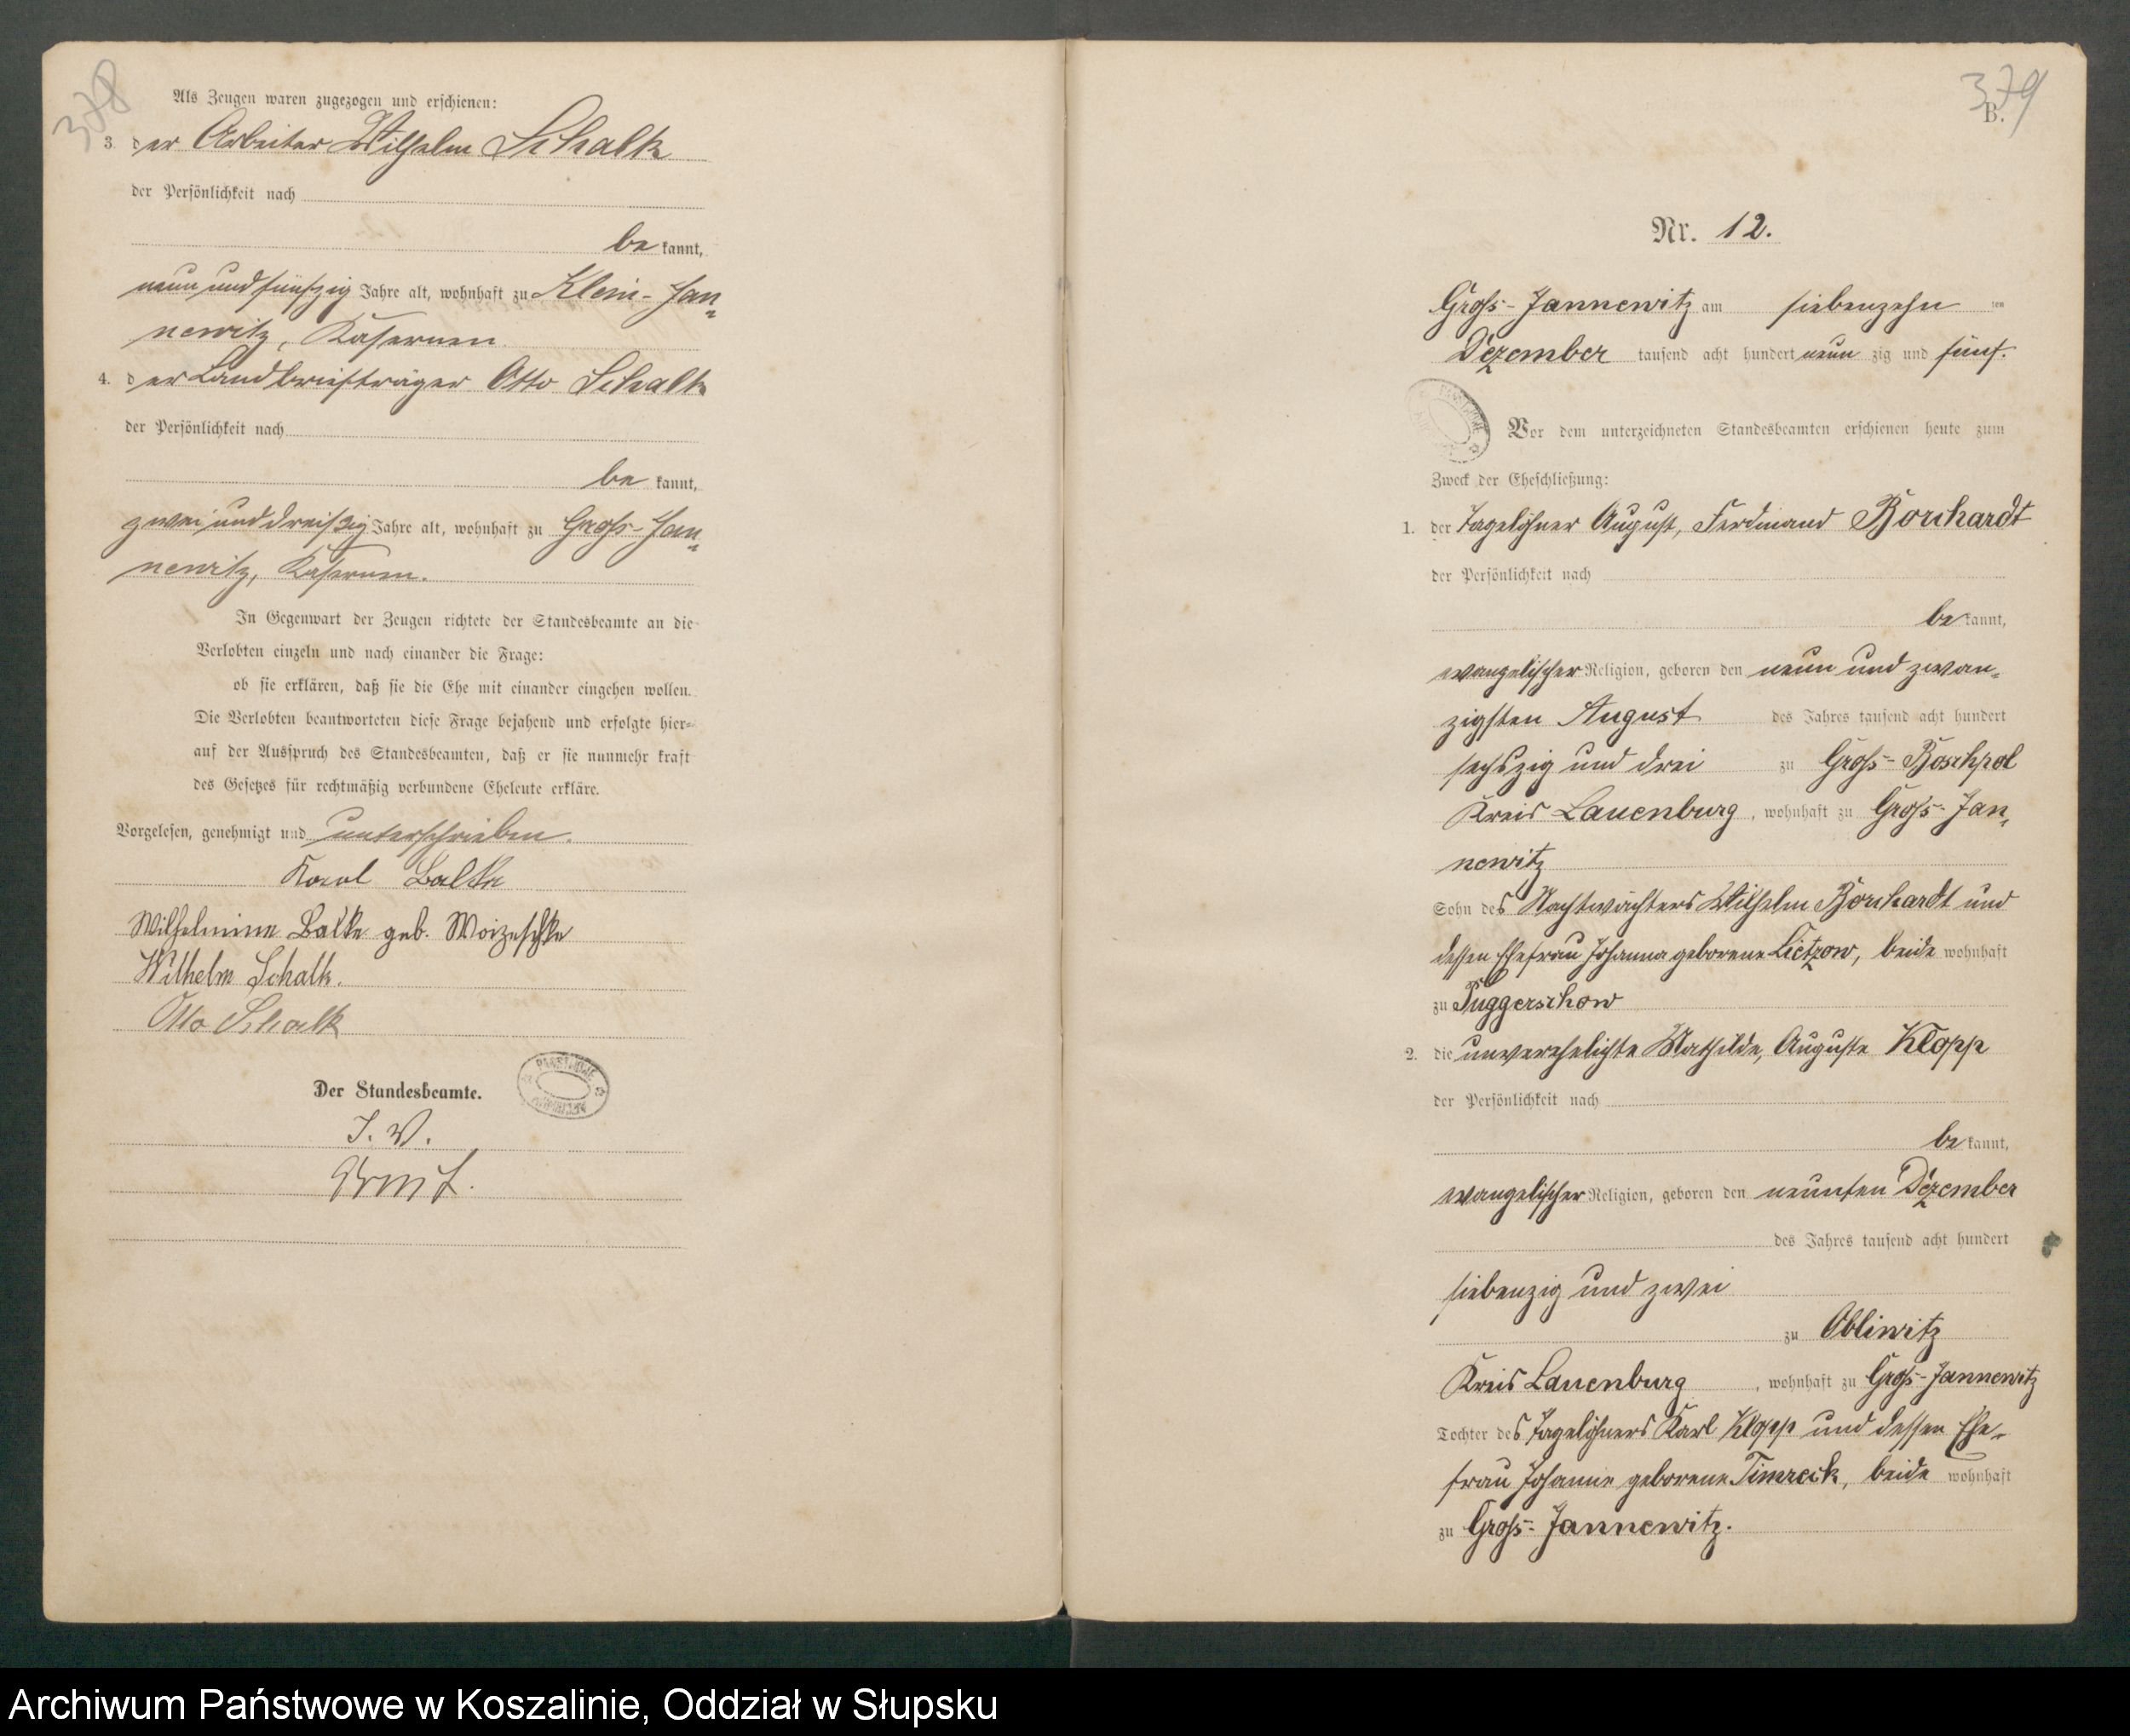 378
Als Zeugen waren zugezogen und erschienen:
3. der Arbeiter Wilhelm Schalk
der Persönlichkeit nach
be kannt,
neun und fünfzig Jahre alt, wohnhaft zu Klein-Jan=
newitz, Kasernen.
4. der Landbriefträger Otto Schalk
der Persönlichkeit nach
be kannt,
zwei und dreißig Jahre alt, wohnhaft zu Groß-Jan=
newitz, Kasernen.
In Gegenwart der Zeugen richtete der Standesbeamte an die
Verlobten einzeln und nach einander die Frage:
ob sie erklären, daß sie die Ehe mit einander eingehen wollen.
Die Verlobten beantworteten diese Frage bejahend und erfolgte hier=
auf der Ausspruch des Standesbeamten, daß er sie nunmehr kraft
des Gesetzes für rechtmäßig verbundene Eheleute erkläre.
Vorgelesen, genehmigt und unterschrieben.
Karl Balke
Wilhelmine Balke geb. Woizeschke
Wilhelm Schalk.
Otto Schalk
Der Standesbeamte.
I. V.
379
B.
Nr. 12.
Groß-Jannewitz am siebenzehn ten
Dezember tausend acht hundert neun zig und fünf.
Vor dem unterzeichneten Standesbeamten erschienen heute zum
Zweck der Eheschließung:
1. der Tagelöhner August, Ferdinand Borchardt
der Persönlichkeit nach
be kannt,
evangelischer Religion, geboren den neun und zwan=
zigsten August des Jahres tausend acht hundert
sechszig und drei zu Groß-Boschpol
Kreis Lauenburg, wohnhaft zu Groß-Jan=
newitz
Sohn des Nachtwächters Wilhelm Borchardt und
dessen Ehefrau Johanna geborene Lietzow, beide wohnhaft
zu Puggerschow
2. die unverehelichte Mathilde, Auguste Klopp
der Persönlichkeit nach
be kannt,
evangelischer Religion, geboren den neunten Dezember
des Jahres tausend acht hundert
siebenzig und zwei
zu Obliwitz
Kreis Lauenburg, wohnhaft zu Groß-Jannewitz
Tochter des Tagelöhners Karl Klopp und dessen Ehe=
frau Johanne geborene Timreck, beide wohnhaft
zu Groß-Jannewitz.
Archiwum Państwowe w Koszalinie, Oddział w Słupsku